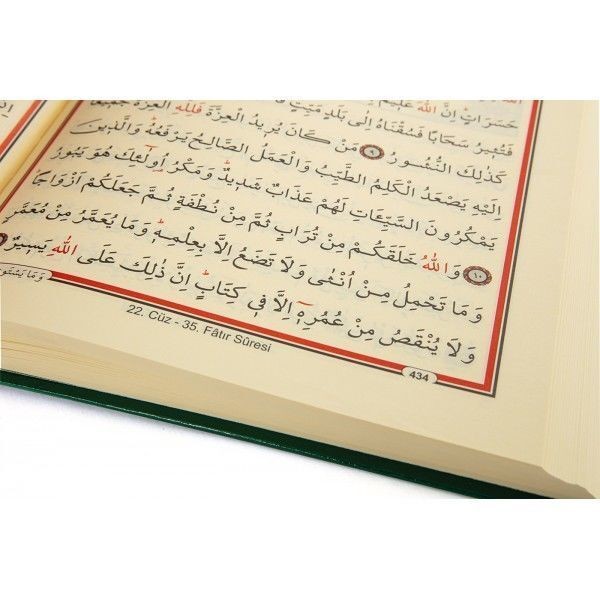 حَسَرَاتٍ اِنَّ اللّٰهَ عَلٖيمٌ
فَتُثٖيرُ سَحَابًا فَسُقْنَاهُ اِلٰى بَلَدٍ مَيِّتٍ
كَذٰلِكَ النُّشُورُ ٩ مَنْ كَانَ يُرٖيدُ الْعِزَّةَ فَلِلّٰهِ الْعِزَّةُ جَمٖيعًا
اِلَيْهِ يَصْعَدُ الْكَلِمُ الطَّيِّبُ وَالْعَمَلُ الصَّالِحُ يَرْفَعُهُ وَالَّذٖينَ
يَمْكُرُونَ السَّيِّـَٔاتِ لَهُمْ عَذَابٌ شَدٖيدٌ وَمَكْرُ اُو۬لٰٓئِكَ هُوَ يَبُورُ
١٠ وَاللّٰهُ خَلَقَكُمْ مِنْ تُرَابٍ ثُمَّ مِنْ نُطْفَةٍ ثُمَّ جَعَلَكُمْ اَزْوَاجًا
وَمَا تَحْمِلُ مِنْ اُنْثٰى وَلَا تَضَعُ اِلَّا بِعِلْمِهٖ وَمَا يُعَمَّرُ مِنْ مُعَمَّرٍ
وَلَا يُنْقَصُ مِنْ عُمُرِهٖٓ اِلَّا فٖي كِتَابٍ اِنَّ ذٰلِكَ عَلَى اللّٰهِ يَسٖيرٌ
وَمَا يَسْتَوِي
22. Cüz - 35. Fâtır Sûresi
434